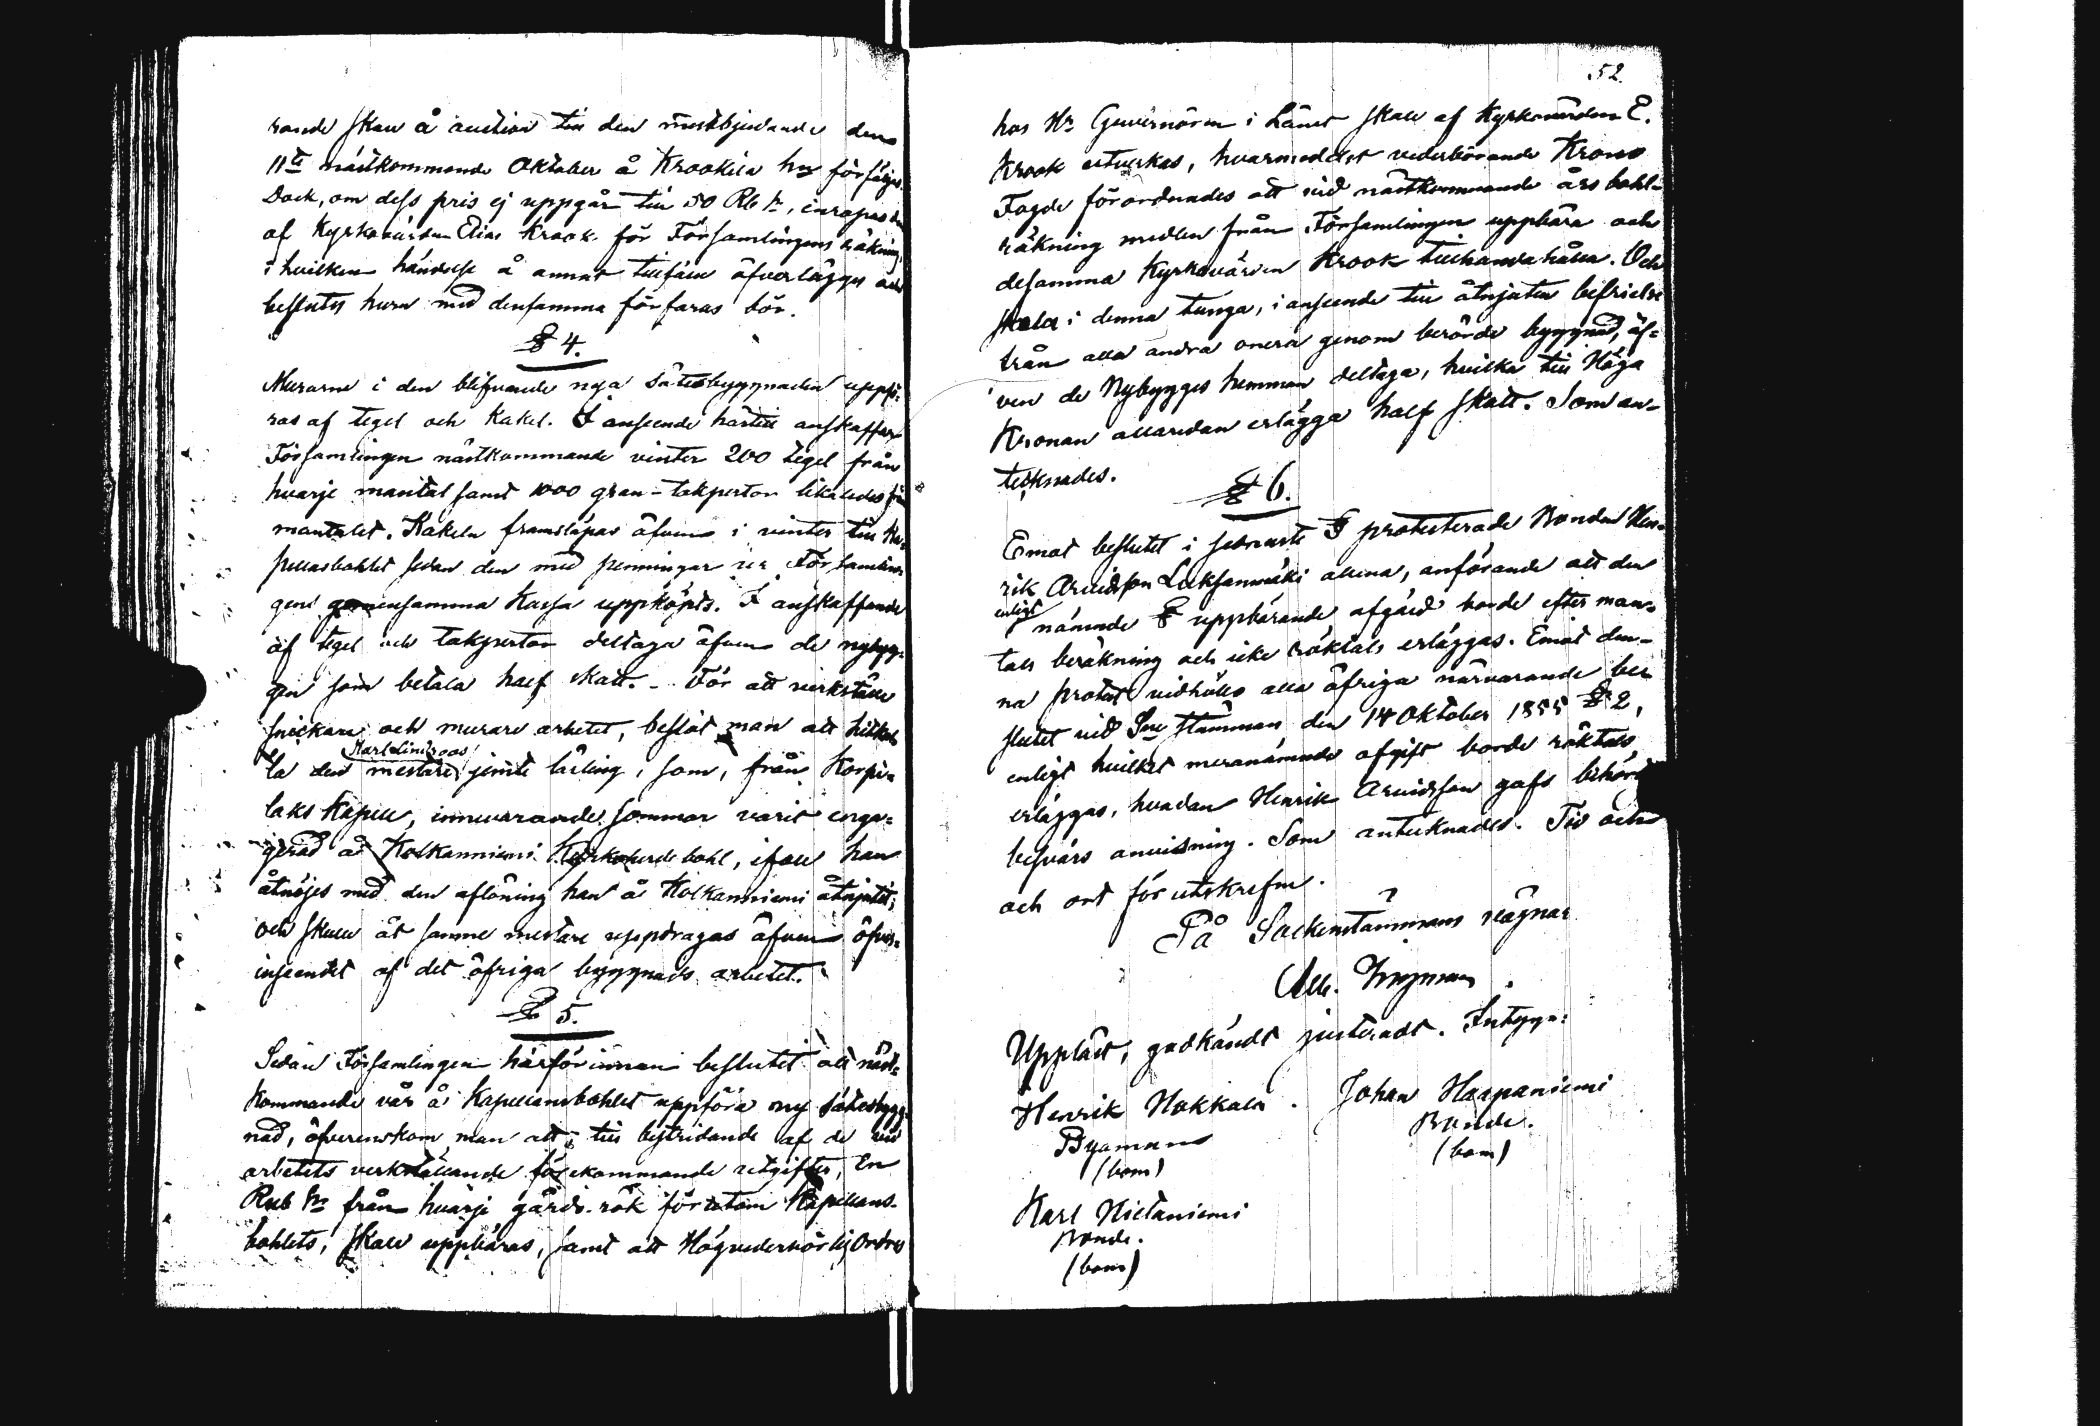 rande skall å auction till den mestbjudande den
11te nästkommande Oktober å Krookila hn försäljas.
Dock, om dess pris ej uppgår till 50 Rb Sr, inropas den
af Kyrkovärden Elias Krook för Församlingens räkning,
i hvilken händelse å annat tillfälle öfverlägges och
beslutes huru med densamma förfaras bör.
§ 4.
Murarne i den blifvande nya Sätesbyggnaden uppfö-
ras af tegel och kakel. I anseende härtill anskaffar
Församlingen nästkommande vinter 200 tegel från
hvarje mantal samt 1000 gran-takpertor likaledes från
mantalet. Kakeln framsläpas äfven i vinter till Ka-
pellansbohlet sedan den med penningar ur Församlin-
gens gemensamma Kassa uppköpts. I anskaffande
af tegel och takpertor deltaga äfven de nybyg-
gen som betala half skatt. För att verkställa
snickare och murare arbetet, beslöt man att hitkal-
Karl Lindroos
la den mestare jemte lärling, som, från Korpi-
laks Kapell, innevarande sommar varit enga-
gerad å Kolkanniemi Kyrkoherde bohl, ifall han
åtnöjes med den aflöning han å Kolkanniemi åtnjutit;
och skulle åt samme mestare uppdragas äfven öfver-
inseendet af det öfriga byggnads arbetet.
§ 5.
Sedan Församlingen härförinnan beslutet att näst-
kommande vår å Kapellansbohlet uppföra ny sätesbygg-
nad, öfverenskom man att, till bestridande af de vid
arbetets verkställande förekommande utgifter, En
Rub Sr från hvarje gårds-rök förutom Kapellans-
bohlets, skall uppbäras, samt att Högvederbörlig Ordres
52.
hos Hr Guvernören i Länet skall af Kyrkovärden E.
Krook utverkas, hvarmedelst vederbörande Krono
Fogde förordnades att vid nästkommande års bohl-
räkning medlen från Församlingen uppbära och
desamma Kyrkovärden Krook tillhandahålla. Och
skola i denna tunga, i anseende till åtnjuten befrielse
från alla andra onera genom berörde byggnad, äf-
ven de Nybygges hemman deltaga, hvilka till Höga
Kronan allaredan erlägga half skatt. Som an-
tecknades.
§ 6.
Emot beslutet i sednaste § protesterade Bonden Hen-
rik Arvidsson Leksanmäki allena, anförande att den
enligt
nämnde § uppbärande afgärd borde efter man-
tals beräkning och icke röktals erläggas. Emot den-
na protest vidhöllo alla öfriga närvarande be-
slutet vid Sne Stämman den 14 Oktober 1855 § 2,
enligt hvilket meranämnde afgift borde röktals
erläggas, hvadan Henrik Arvidsson gafs behörig
besvärs anvisning. Som antecknades. Tid och
och ort förutskrefne.
På Sockenstämmans vägnar
Upplást, godkändt justeradt. Intyga:
Henrik Hokkala. Johan Harpaniemi
Byamann Bonde.
(bom) (bom)
Karl Hietaniemi
Bonde.
(bom)